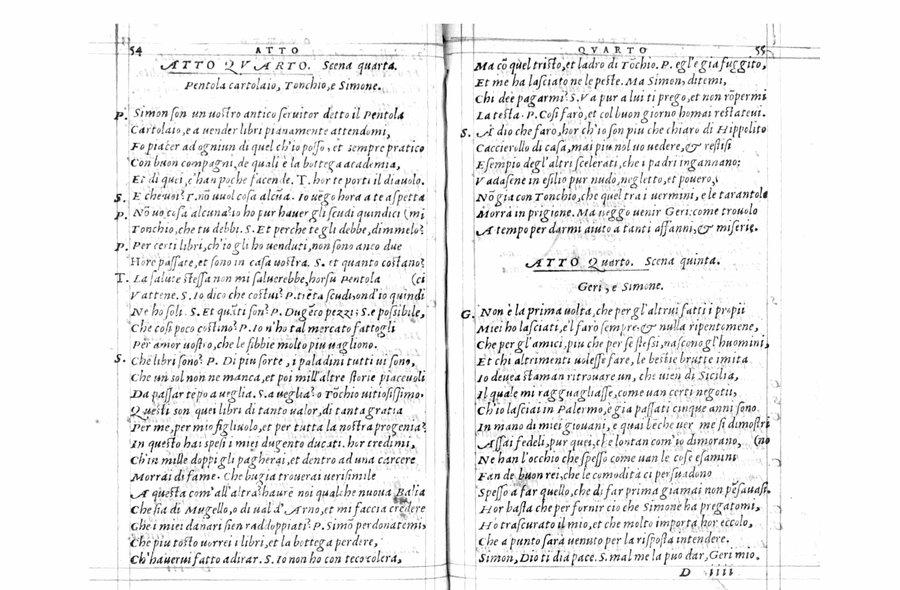 54 ATTO
ATTO QVARTO. Scena quarta.
Pentola cartolaio, Tonchio, e Simone.
P. Simon son un uostro antico seruitor detto il Pentola
Cartolaio, e a vender libri pianamente attendomi,
Fo piacer ad ogniun di quel ch'io posso, et sempre pratico
Con buon compagni, de quali è la bottega academia,
Et di quei, c'han poche facende. T. hor te porti il diauolo.
S. E che uoi? T. nō uuol cosa alcūa. Io uēgo hora a te aspetta
P. Nō uo cosa alcuna: io ho pur hauer gli scudi quindici (mi
Tonchio, che tu debbi. S. Et perche te gli debbe, dimmelo?
P. Per certi libri, ch'io gli ho uenduti, non sono anco due
Hore passate, et sono in casa uostra. S. et quanto costano?
T. La salute stessa non mi saluerebbe, horsu Pentola (ci
Vattene. S. Io dico che costui? P. trēta scudi, ond'io quindi
Ne ho soli. S. Et quāti son? P. Dugēto pezzi; S. e possibile,
Che cosi poco costino? P. Io n'ho tal mercato fattogli
Per amor uostro, che le fibbie molto piu uagliono.
S. Che libri sono? P. Di piu sorte, i paladini tutti ui sono,
Che un sol non ne manca, et poi mill'altre storie piaceuoli
Da passar tēpo a ueglia. S. a ueglia? o Tōchio uitiosissimo.
Questi son quei libri di tanto ualor, di tanta gratia
Per me, per mio figliuolo, et per tutta la nostra progenia?
In questo hai spesi i miei dugento ducati. hor credimi,
Ch'in mille doppi gli pagherai, et dentro ad una carcere
Morrai di fame. Che bugia trouerai uerisimile
A questa com'all'altra? haurē noi qualche nuoua Balia
Che sia di Mugello, o di ual d'Arno, et mi faccia credere
Che i miei danari sien raddoppiati? P. Simō perdonatemi,
Che piu tosto uorrei i libri, et la bottega perdere,
Ch'hauerui fatto adirar. S. Io non ho teco colera,
QVARTO 55
Ma cō quel tristo, et ladro di Tōchio. P. egl'è gia fuggito,
Et me ha lasciato ne le peste. Ma Simon, ditemi,
Chi dee pagarmi? S. Va pur a lui ti prego, et non rōpermi
La testa. P. Cosi farò, et col buon giorno homai restateui.
S. A dio che farò, hor ch'io son piu che chiaro di Hippolito
Caccierollo di casa, mai piu nol uo uedere, & resisi
Esempio degl'altri scelerati, che i padri ingannano;
Vadasene in esilio pur nudo, negletto, et pouero,
Nō gia con Tonchio, che quel tra i uermini, e le tarantole
Morrà in prigione. Ma ueggo uenir Geri: come trouolo
A tempo per darmi aiuto a tanti affanni, & miserie.
ATTO Quarto. Scena quinta.
Geri, e Simone.
G. Non è la prima uolta, che per gl'altrui fatti i propii
Miei ho lasciati, e'l farò sempre: & nulla ripentomene,
Che per gl'amici, piu che per se stessi, nascono gl'huomini,
Et chi altrimenti uolesse fare, le bestie brutte imita
Io deuea staman ritrouare un, che uien di Sicilia,
Il quale mi ragguagliasse, come uan certi negotii,
Ch'io lasciai in Palermo, e gia passati cinque anni sono.
In mano di miei giouani, e quai beche uer me si dimostri
Assai fedeli, pur quei, che lontan com'io dimorano, (no
Ne han l'occhio che spesso come uan le cose esamini
Fan de buon rei, che le comodità ci persuadono
Spesso a far quello, che di far prima giamai non pēsauasi.
Hor basta che per fornir ciò che Simone ha pregatomi,
Ho trascurato il mio, et che molto importa hor eccolo,
Che a punto sarà uenuto per la risposta intendere.
Simon, Dio ti dia pace. S. mal me la puo dar, Geri mio.
D iiii